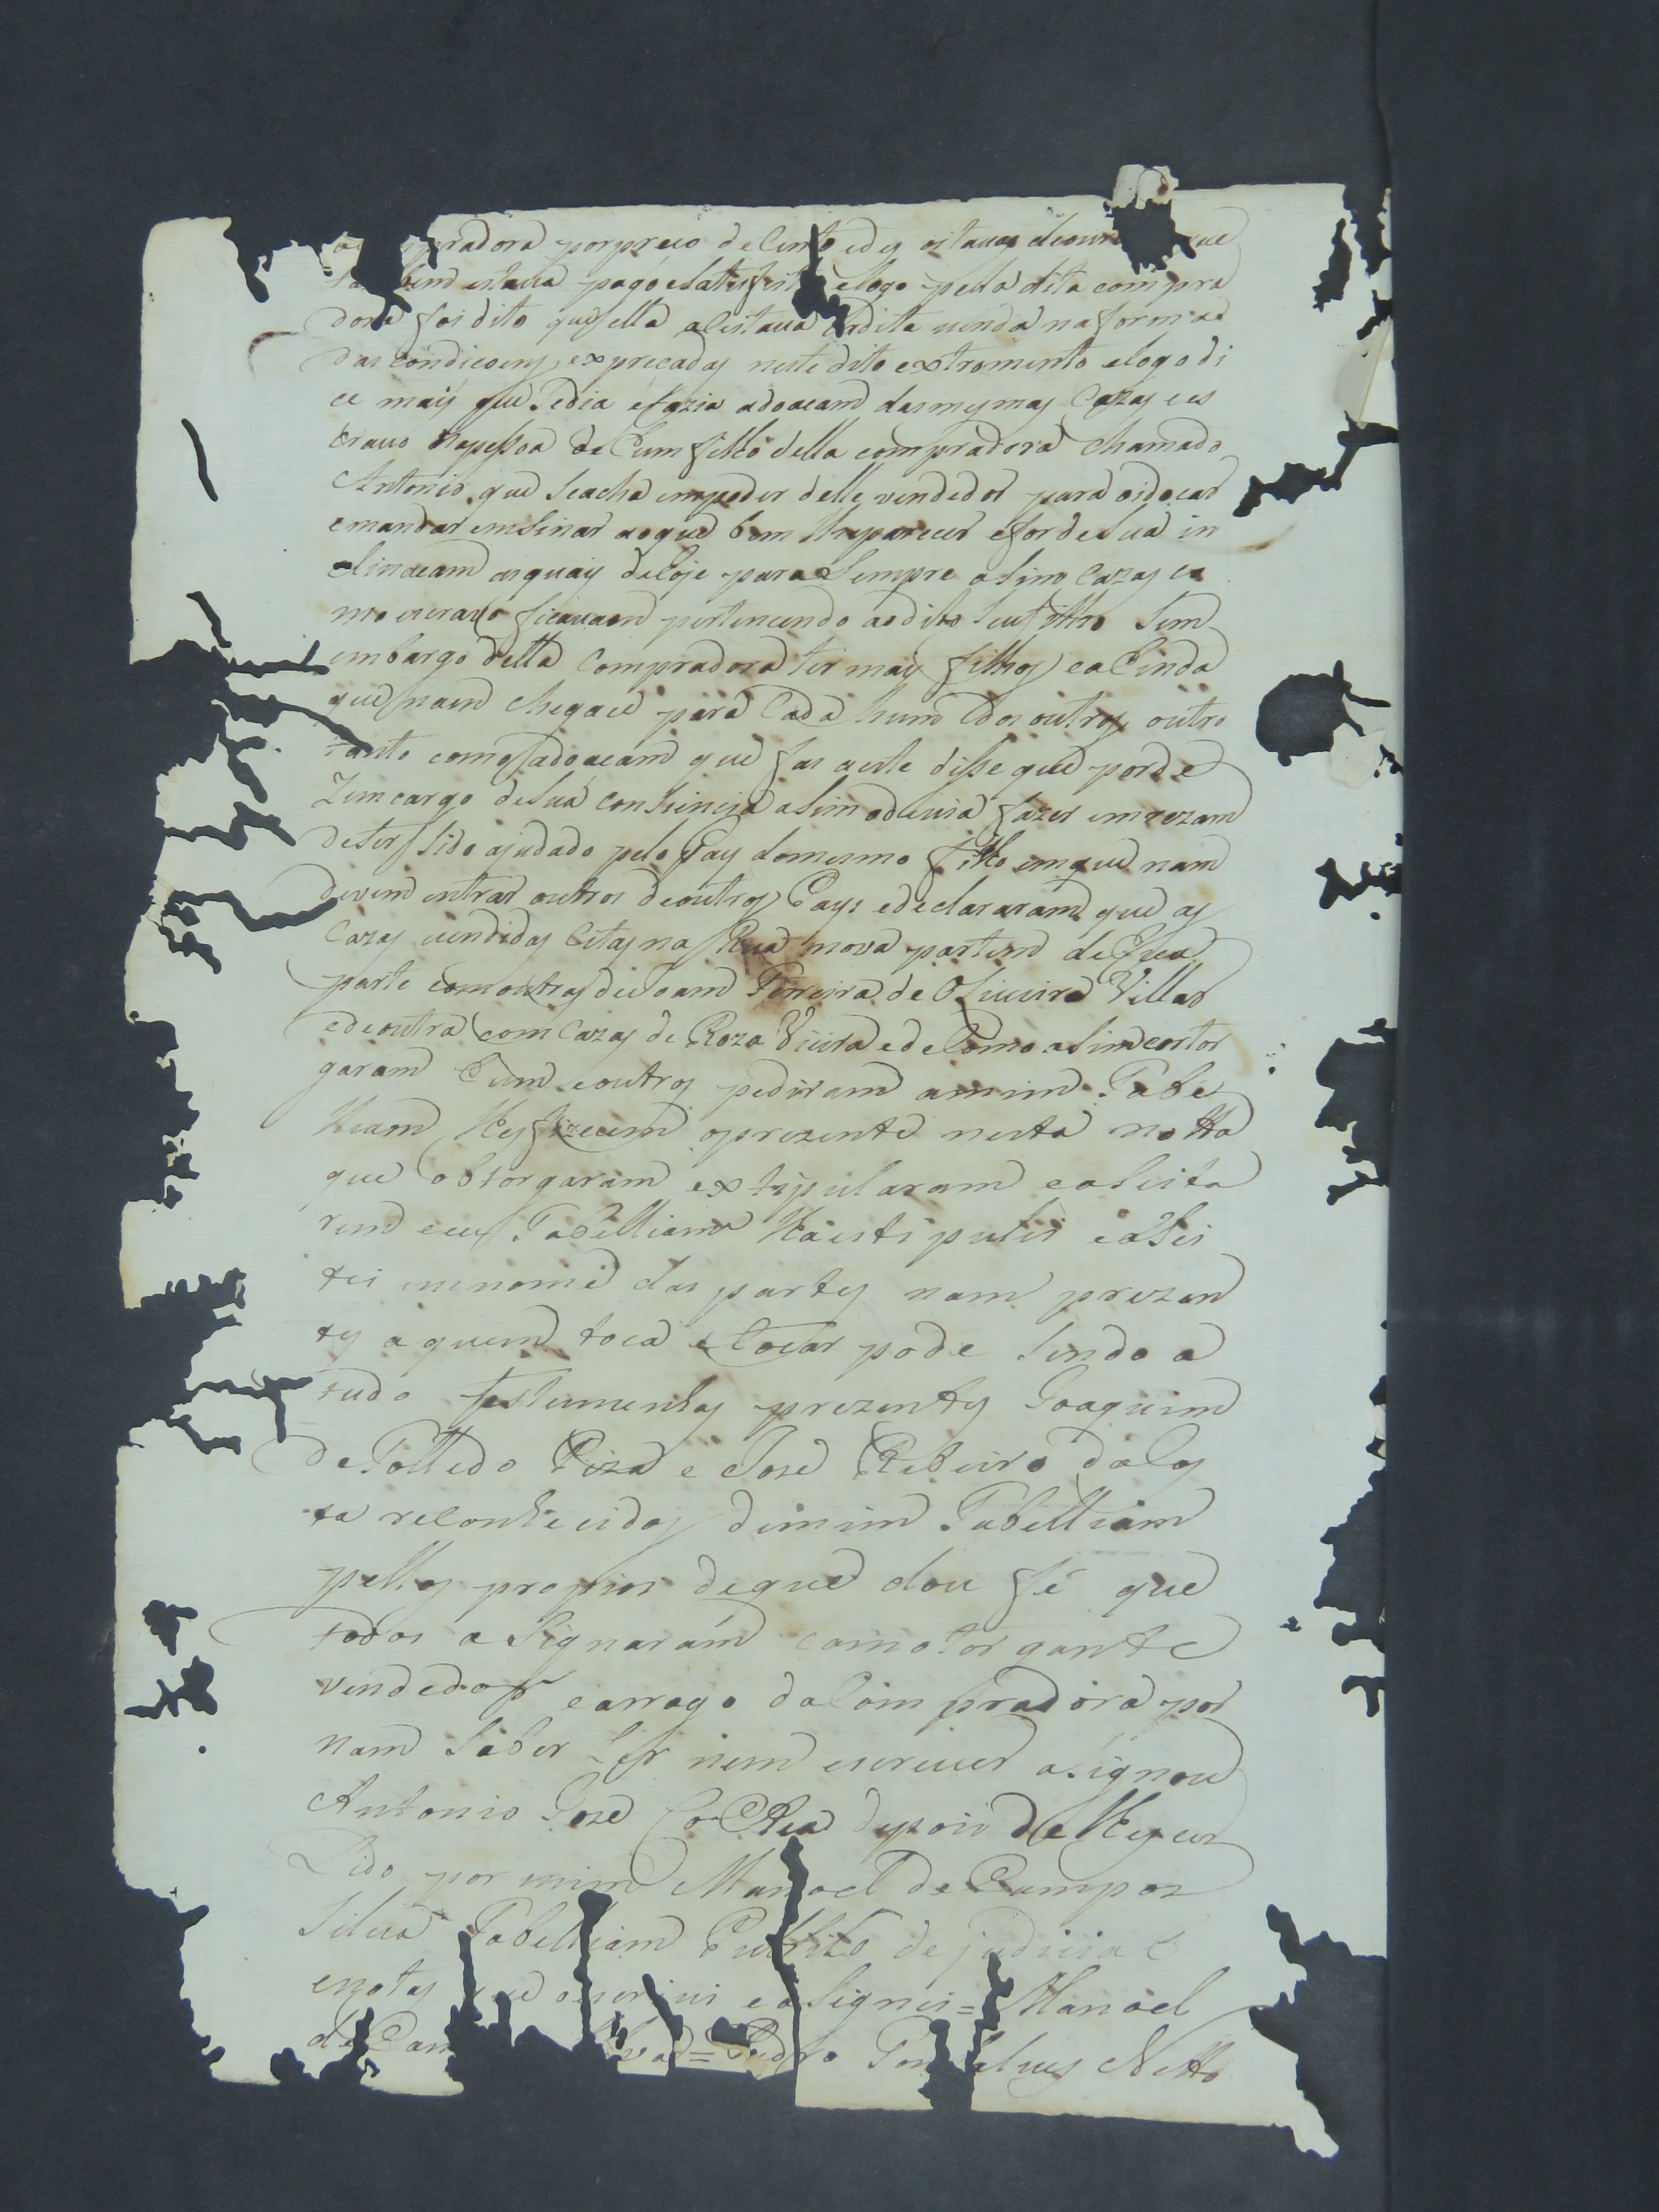 pradora por preco de cento e des oitauas deouro que
tambem estaua pago esatisfeito elogo pella dita compra
dora foi dito que ella aseitaua adita venda na forma e
das condicoens expreçadas neste dito extromento elogo di
ce mais que sedia efazia adoacam das mesmas Cazas e es
crauo napessoa de hum filho della compradora chamado
Antonio que seacha empoder delle vendedor para oidocar
emandar emsinar aoque bem lheparecer efor desua in
clinacam asquais dehoje para sempre asim Cazas co
mo escrauo ficauam pertencendo aodito seu filho sem
embargo della compradora ter mais filhos eahinda
que nam chegace para Cada hum dos outros outro
tanto como adoacam que fas aeste disse que porde
zemcargo desua consiencia asim odeuia fazer emrezam
deter sido ajudado pelo Pay domesmo filho emque nam
devem entrar outros deoutros Pays edeclararam que as
Cazas vendidas citas na Rua nova partem dehuma
parte comoutras deJoam Ferreira de Oliveira Villar
edeoutra com Cazas de Roza Vieira e decomo asim eoutor
garam hum eoutros pediram amim Tabe
lliam lhes fizecem oprezente nesta notta
que obtorgaram extipularam easeita
ram eeu Tabelliam lhaestipulei easei
tei emnome das partes nam prezen
tes aquem toca etocar pode sendo a
tudo testemunhas prezentes Joaquim
deTolledo Piza e Jose Ribeiro daCos
ta reconhecidos demim Tabelliam
pellos propios deque dou fé que
todos asignaram comotorgante
vendedor earrogo dacompradora por
nam saber ler nem escriuer asignou
Antonio Joze Correa depois delheser
Lido por mim Manoel de Campos
Silua Tabelliam Publico dejudicial
enotas que oescriui easignei = Manoel
de Cam Silva = Pedro Gonsalues Netto